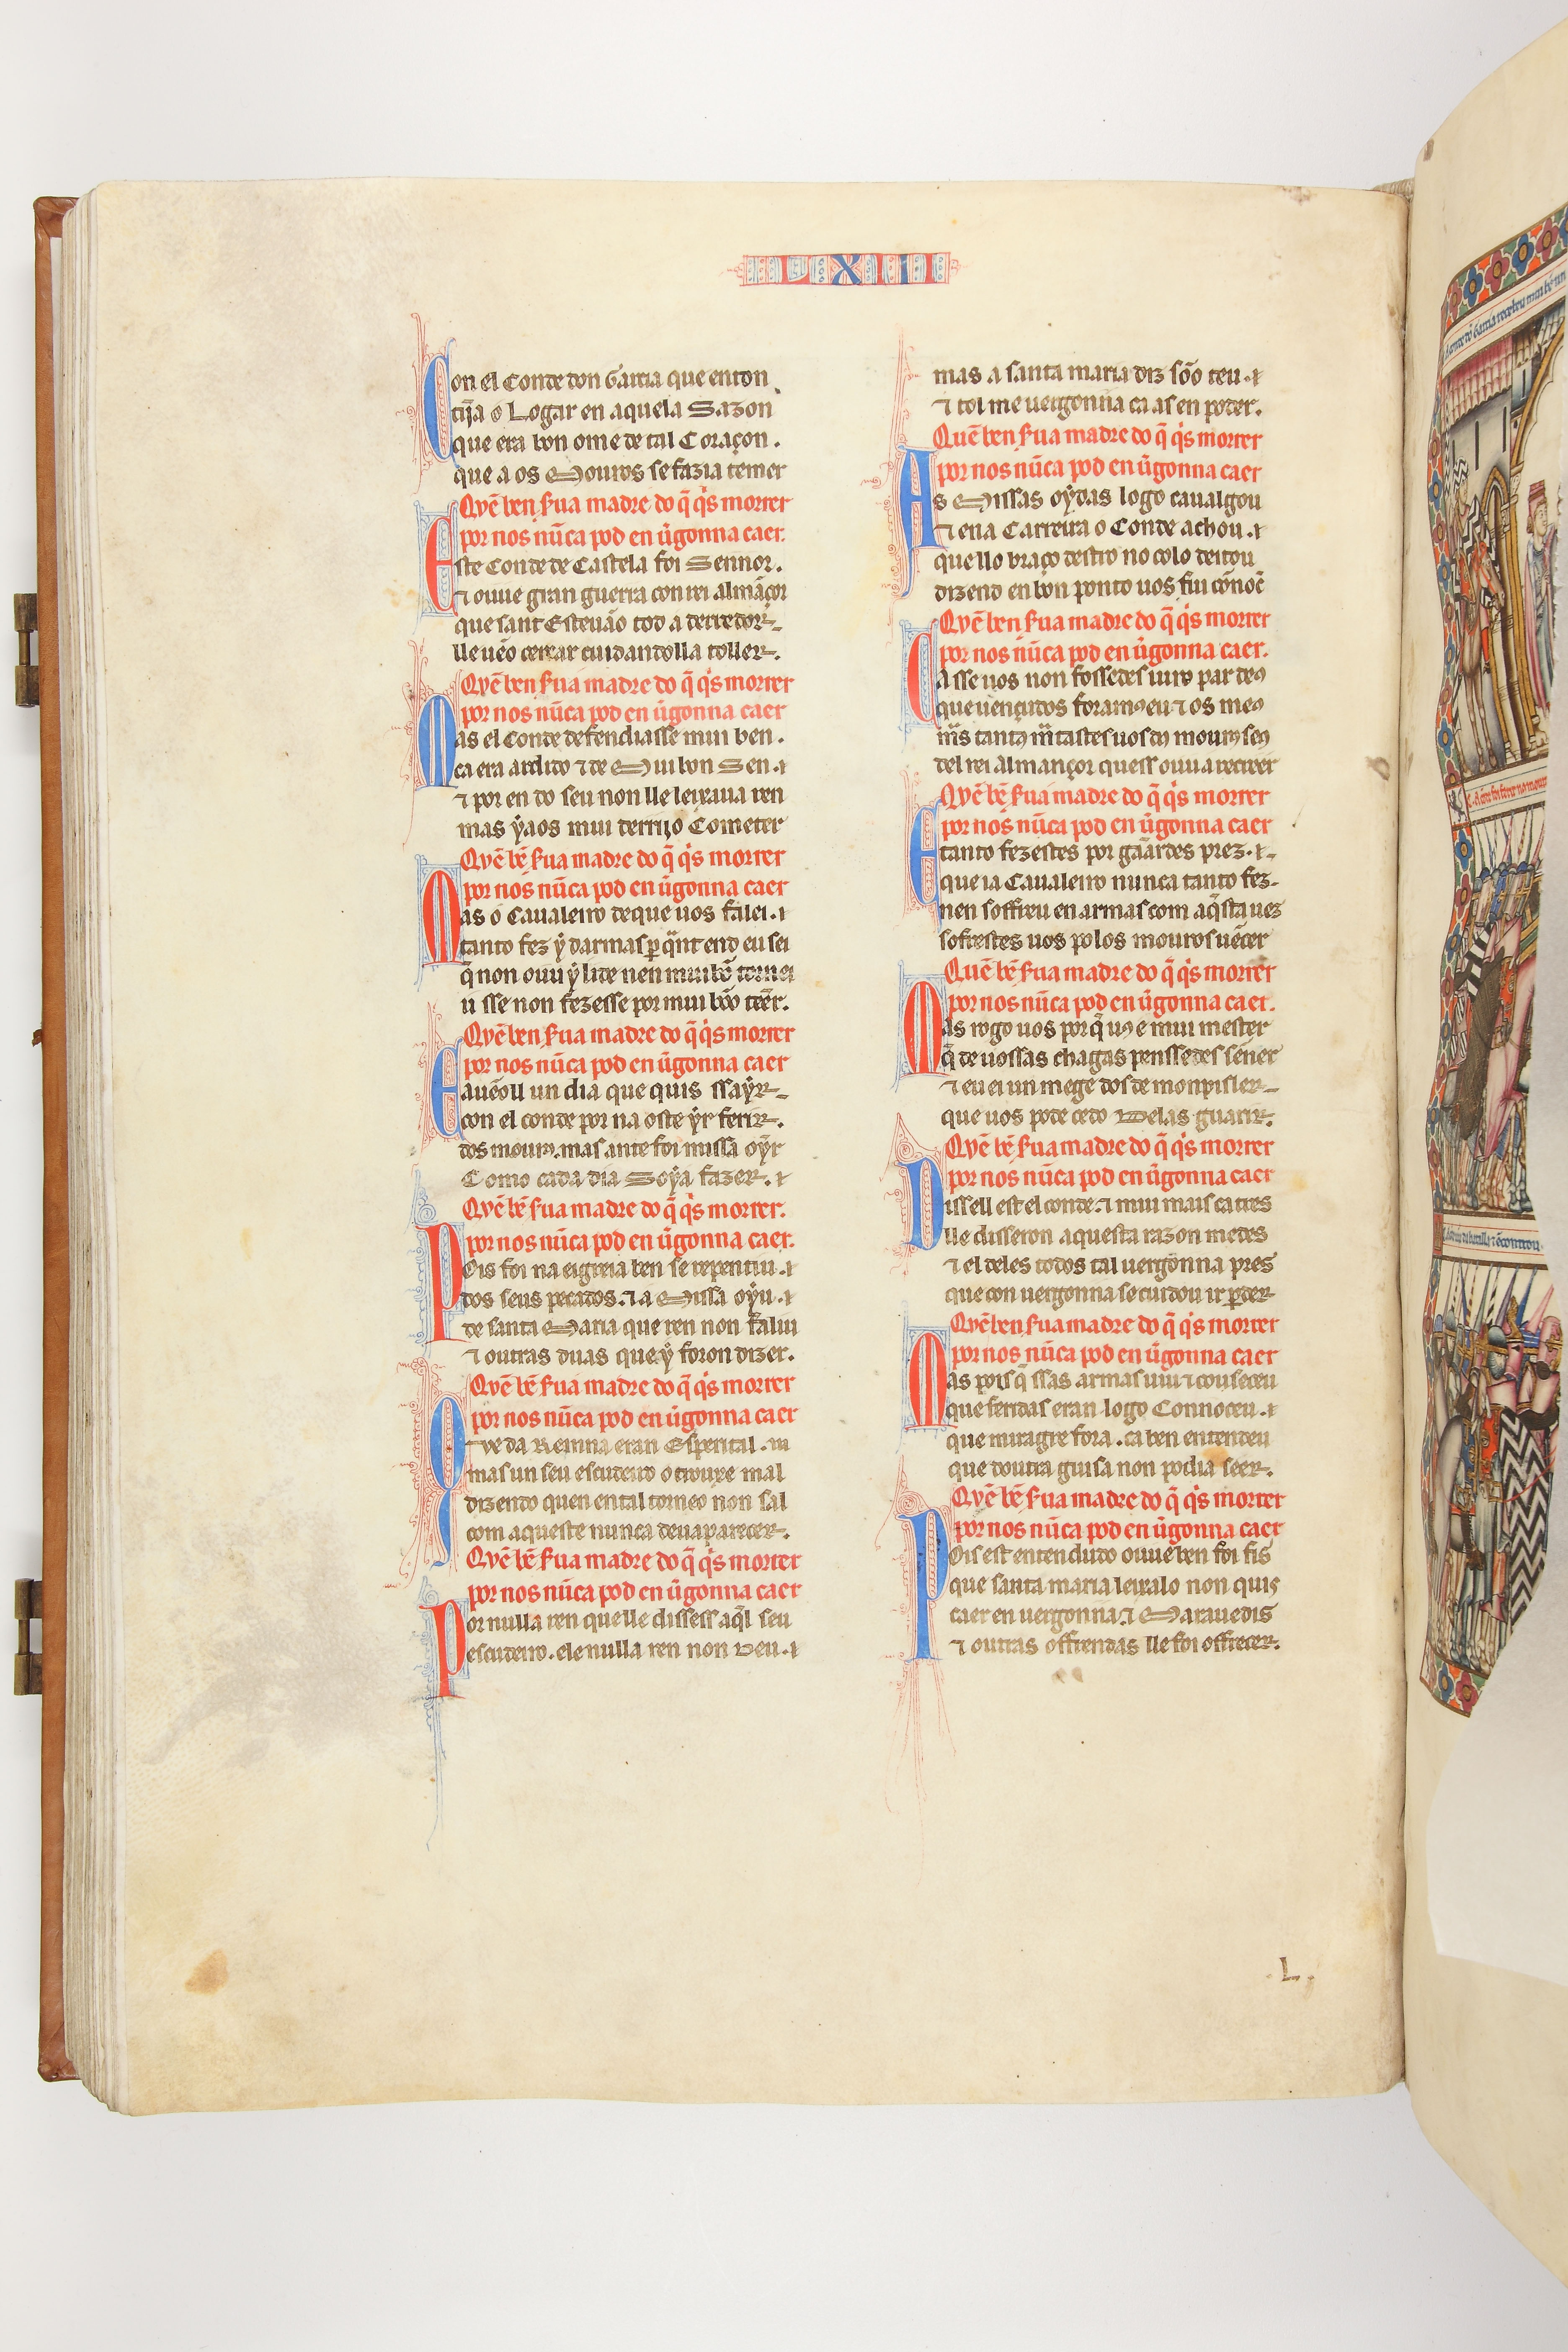 LXIII
Con el Conde don Garcia que enton
tija o Logar en aquela Sazon
que era bon ome de tal Coraçon.
que a os Mouros se fazia temer
Quẽ ben sua madre do q̃ q̇s morrer
por nos nũca pod en ũgonna caer.
Este Conde de Castela foi Sennor.
⁊ ouue gran guerra con rei Almãçor
que sant Esteuão tod a derredor
lle uẽo cercar cuidandolla toller.
Quẽ ben sua madre do q̃ q̇s morrer
por nos nũca pod en ũgonna caer
Mas el Conde defendiasse mui ben.
ca era ardido ⁊ de Mui bon Sen.⁊
⁊ por en do seu non lle leixaua ren
mas ẏaos mui derrijo Cometer
Quẽ bẽ sua madre do q̃ q̇s morrer
por nos nũca pod en ũgonna caer
Mas o Caualeiro de que uos falei.⁊
tanto fez ẏ darmas ꝑ q̃nt end eu sei
q̃ non ouu ẏ lide nen mui bõ tornei
u sse non fezesse por mui bõo tẽer.
Quẽ ben sua madre do q̃ q̇s morrer
por nos nũca pod en ũgonna caer
E auẽoll un dia que quis ssaẏr
con el conde por na oste ẏr ferir.
dos mourꝰ. mas ante foi missa oẏr
Como cada dia Soẏa fazer.⁊
Quẽ bẽ sua madre do q̃ q̇s morrer.
por nos nũca pod en ũgonna caer.
Pois foi na eigreia ben se repentiu.⁊
dos seus pecados.⁊ a Missa oẏu.⁊
de santa Maria que ren non faliu
⁊ outras duas que ẏ foron dizer.
Quẽ bẽ sua madre do q̃ q̇s morrer
por nos nũca pod en ũgonna caer
Que da Reinna eran Esperital.
mas un seu escudeiro o trouxe mal
dizendo quen en tal torneo non sal
com aqueste nunca deu aparecer.
Quẽ bẽ sua madre do q̃ q̇s morrer
por nos nũca pod en ũgonna caer
Por nulla ren que lle dissess aq̃l seu
escudeiro. ele nulla ren non deu.⁊
mas a santa maria diz sõo teu.⁊
⁊ tol me uergonna ca as en poder.
Quẽ ben sua madre do q̃ q̇s morrer
por nos nũca pod en ũgonna caer
As Missas oẏdas logo caualgou
⁊ ena Carreira o Conde achou.⁊
que llo braço destro no colo deitou
dizend en bon ponto uos fui cõnoc̃
Quẽ ben sua madre do q̃ q̇s morrer
por nos nũca pod en ũgonna caer.
Ca sse uos non fossedes iuro par deꝰ
que uençudos foramꝰ eu ⁊ os meꝰ
mas tantꝰ matastes uos dꝰ mourꝰ seꝰ
del rei Almançor quess ouu a recreer
Quẽ bẽ sua madre do q̃ q̇s morrer
por nos nũca pod en ũgonna caer
E tanto fezestes por gãardes prez.⁊
que ia Caualeiro nunca tanto fez
nen soffreu en armas com aq̃sta uez
sofrestes uos polos mouros uẽcer
Quẽ bẽ sua madre do q̃ q̇s morrer
por nos nũca pod en ũgonna caer.
Mas rogo uos por q̃ uꝰ e mui mester
q̃ de uossas chagas penssedes sẽner
⁊ eu ei un mege dos de monpisler
que uos pode cedo Delas guarir.
Quẽ bẽ sua madre do q̃ q̇s morrer
por nos nũca pod en ũgonna caer
Dissell est el conde.⁊ mui mais ca tres
lle disseron aquesta razon medes
⁊ el deles todos tal uergonna pres
que con uergonna se cuidou ir ꝑder
Quẽ ben sua madre do q̃ q̇s morrer
por nos nũca pod en ũgonna caer
Mas pois q̃ ssas armas uiu ⁊ couseceu
que feridas eran logo Connoceu.⁊
que miragre fora. ca ben entendeu
que doutra guisa non podia seer.
Quẽ bẽ sua madre do q̃ q̇s morrer
por nos nũca pod en ũgonna caer
Pois est entendudo ouue ben foi fis
que santa maria leixalo non quis
caer en uergonna.⁊ Marauedis
⁊ outras offrendas lle foi offrecer.
.L.